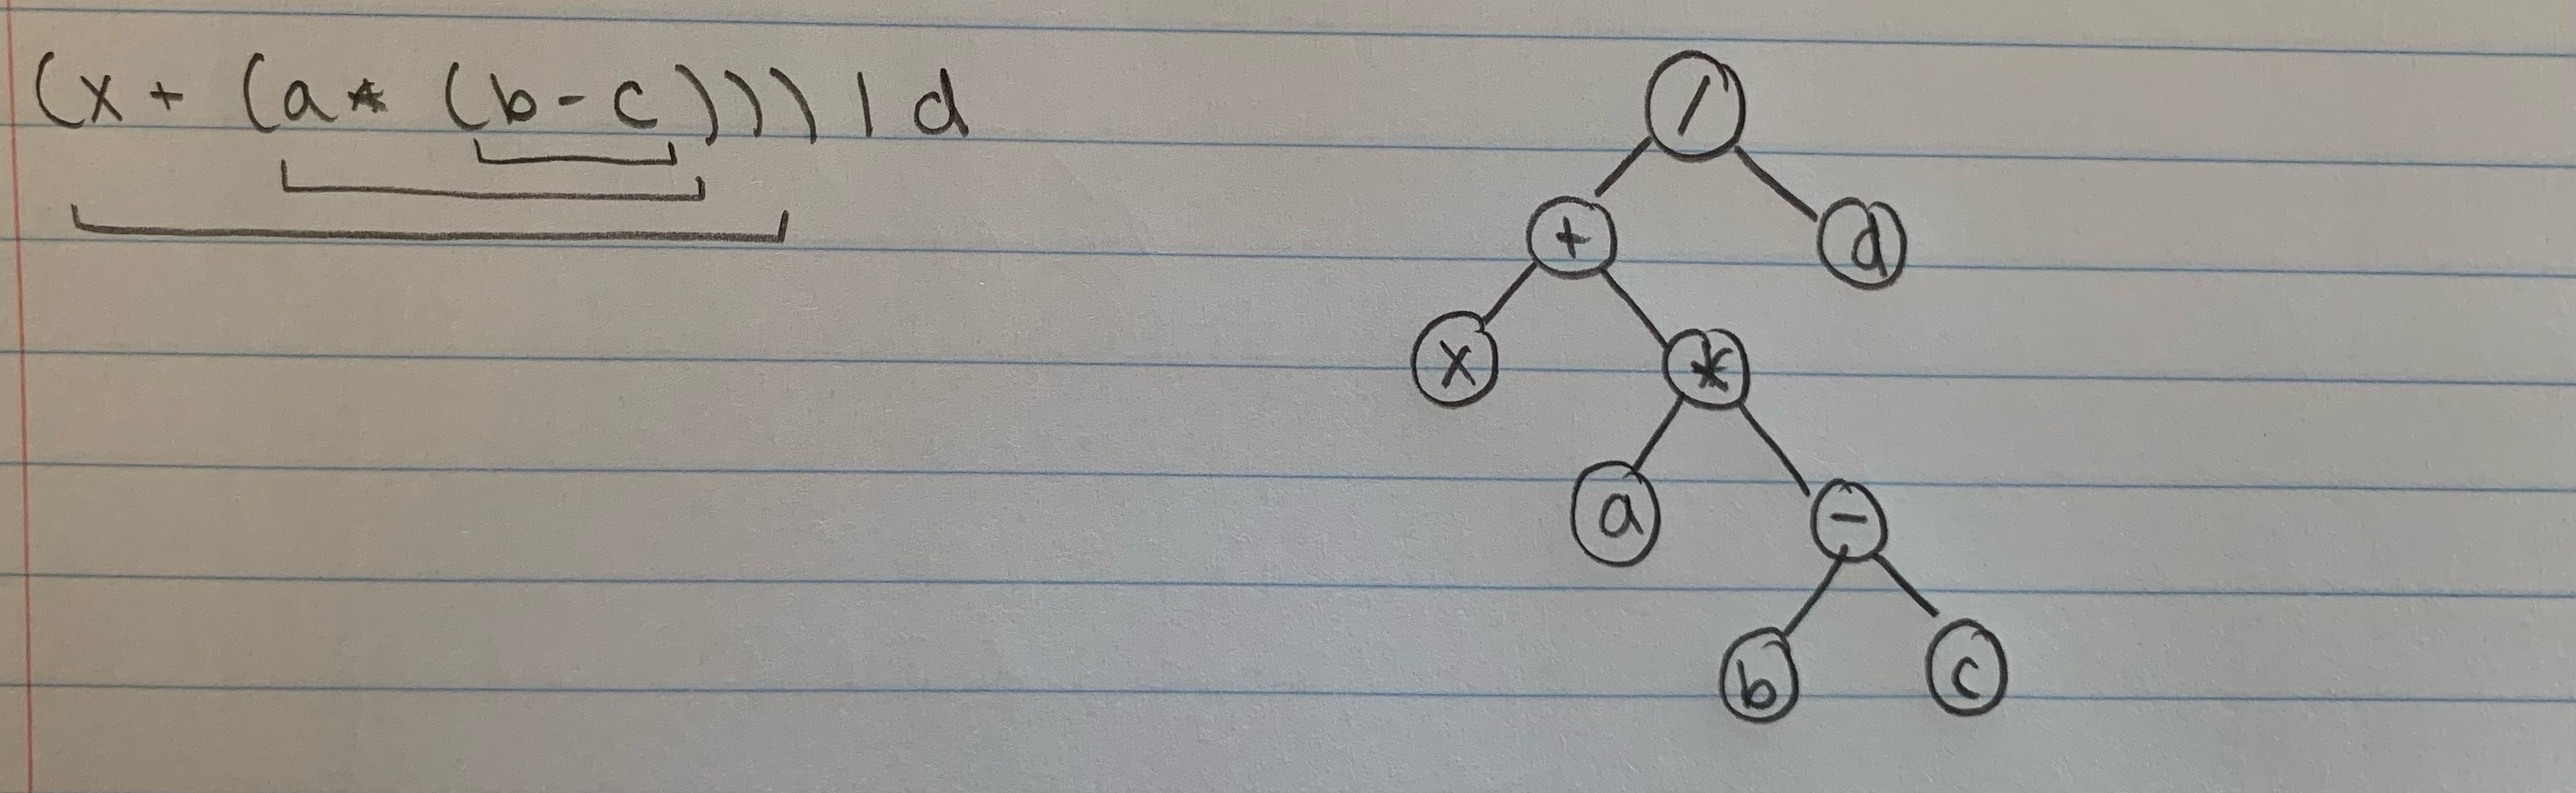 (x + (a * (b - c))) / d
/
+ d
x *
a -
b c